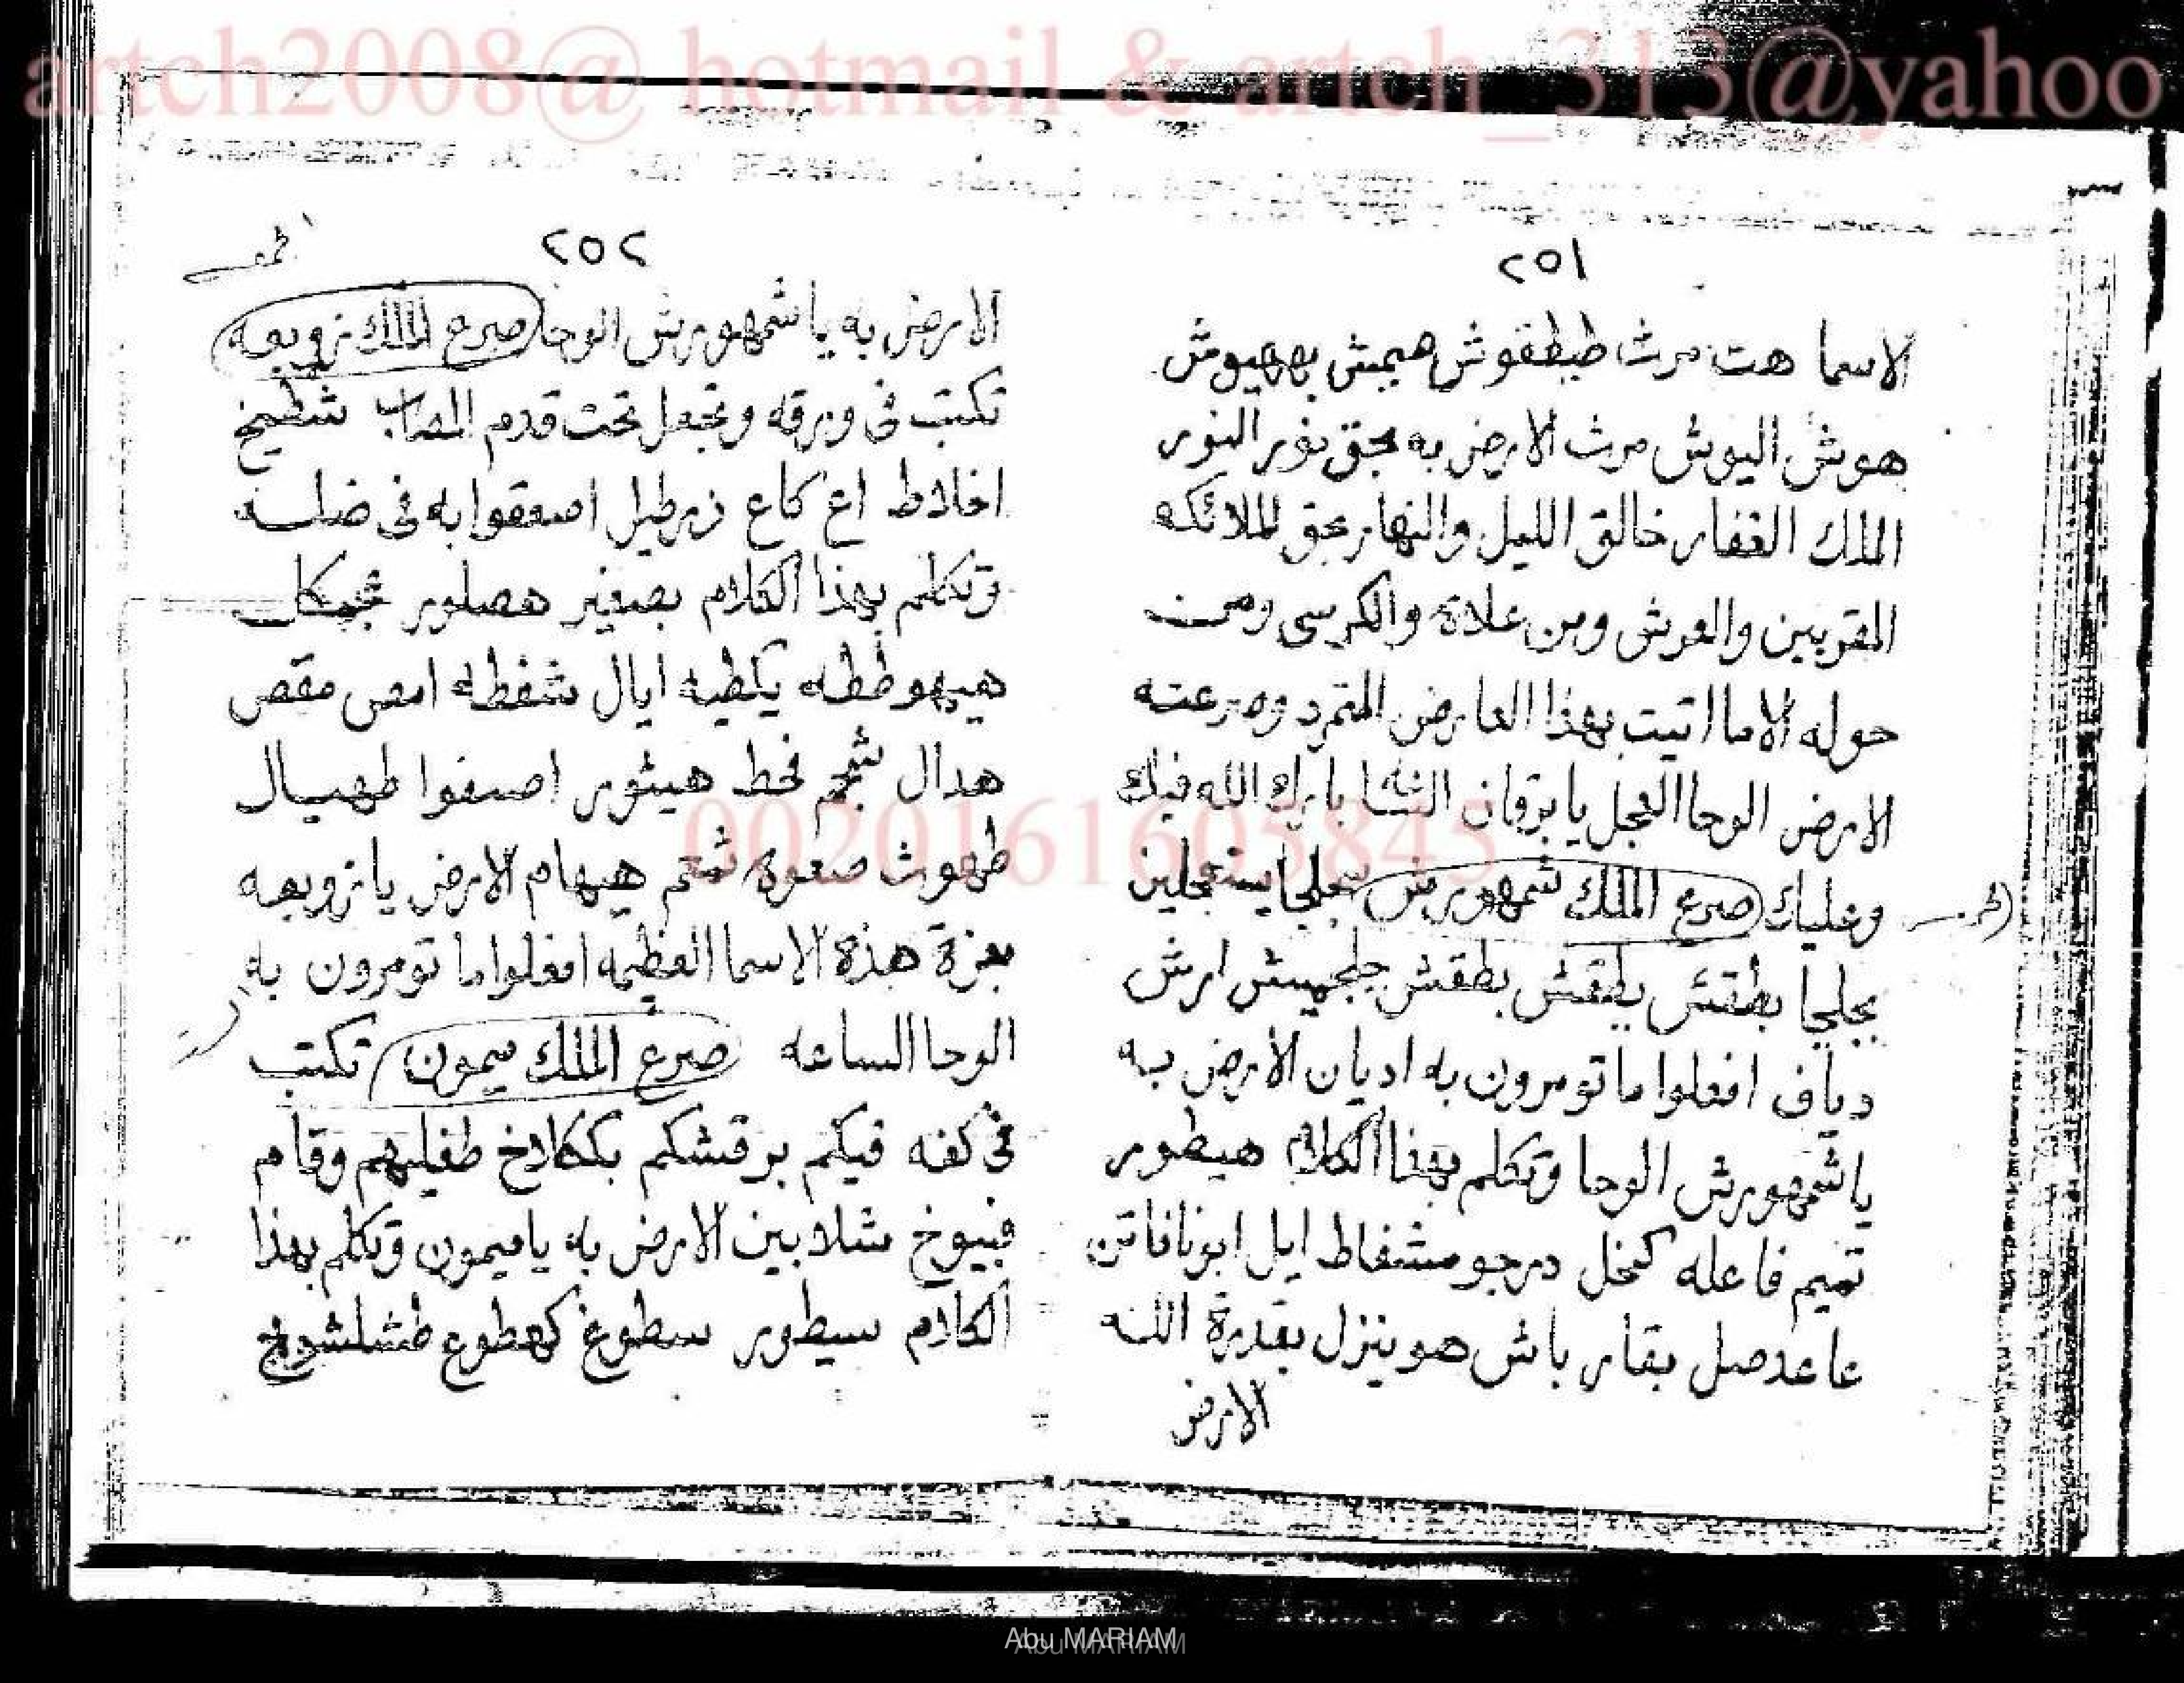 artch2008@ hotmail & artch_313@yahoo
٢٥١
الاسما هت مرث طيطقوش هيمش بههيوش
هوش اليوش مرث الارض به بحق نور النور
الملك الغفار خالق الليل والنهار بحق الملائكه
المقربين والعرش ومن علاه والكرسى ومن
حوله الاما اتيت بهذا العارض المتمرد وصرعته
الارض الوحا العجل يا برقان الشا بارك الله فيك
وعليك صرع الملك شمهورش
بجلجا بطقش بطقش بطقش جلجميش ارش
دياف افعلوا ما تومرون به اديان الارض به
يا شمهورش الوحا وتكلم بهذا الكلام هيطور
تميم فاعله كنخل درجو مشفاط ايل ابو نافا تن
عاعدصل بقار باش هو ينزل بقدرة الله
الارض
٢٥٢
الارض به يا شمهورش الوحا صرع الملك زوبعه
تكتب فى ورقه وتجعل تحت قدم المصاب شطيخ
اخلاط اع كاع زرطيل اصعقوا به فى ضلـه
وتكلم بهذا الكلام بصغير هصلور
هيهوططه يكطيه ايال شفطه امص مقص
هدال شجم فخط هيثور اصعوا طهيال
طهوث صعوه شتم هيهام الارض يا زوبعه
بعزة هذه الاسما العظيمه افعلوا ما تومرون به
الوحا الساعه صرع الملك ميمون تكتب
فى كفه فيكم برقشكم بككلاخ طفليهم وقام
فبيوخ شلا بين الارض به يا ميمون وتكلم بهذا
الكلام سيطور سطوغ كهطوع طشلشوخ
0020161605845
Abu MARIAM